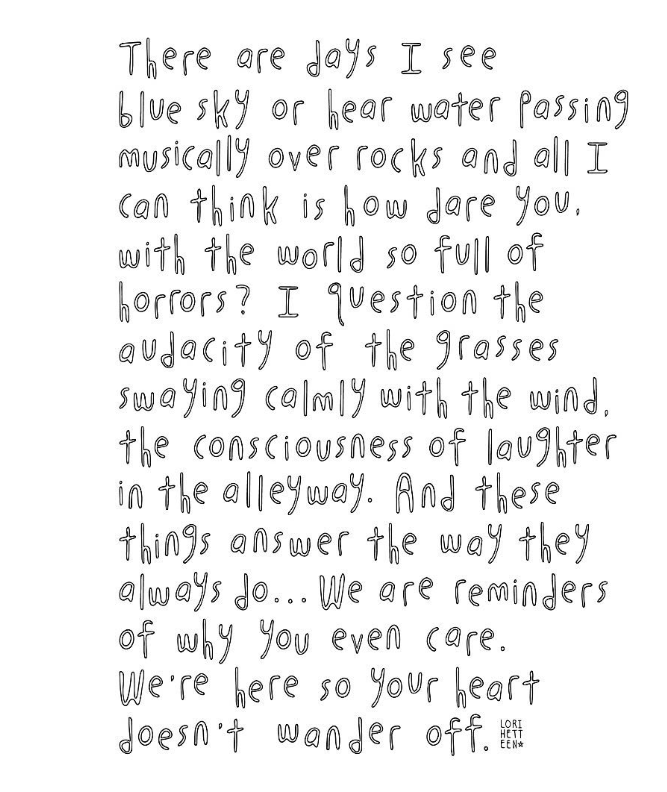 There are days I see
blue sky or hear water passing
musically over rocks and all I
can think is how dare you,
with the world so full of
horrors? I question the
audacity of the grasses
swaying calmly with the wind,
the consciousness of laughter
in the alleyway. And these
things answer the way they
always do... We are reminders
of why you even care.
We're here so your heart
doesn't wander off.
LORI
HETT
EEN★